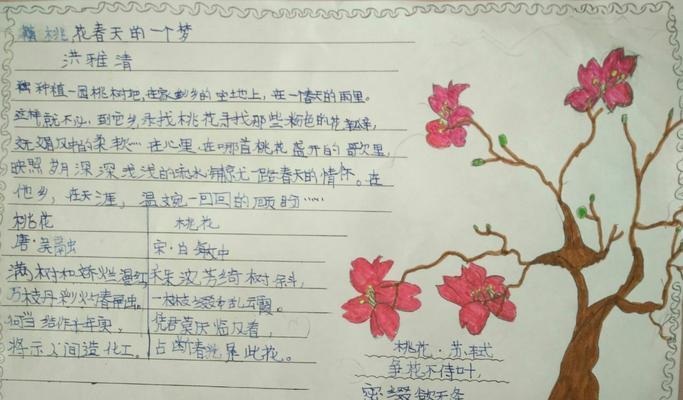 桃花春天的一个梦
洪雅清
种植一园桃树吧,在家乡的空地上,在一个春天的雨里。
这样就不必,到它乡寻找桃花寻找那些粉色的花
风中的柔软……在心里,在哪首桃花盛开的歌次里,
映照明月深深浅浅的流水铺就一路春天的情怀。在
他乡,在天涯,温婉一回回的顾盼……
桃花
唐·吴融
满树和娇烂漫红
万枝丹彩灼春融。
何当结作千年实,
将示人间造化工。
桃花
宋·白敏中
朱波芳绮树
一枝枝缀乱云霞。
凭君莫厌临风看,
占断春光是此花。
桃花·苏轼
争花不待叶,
密缀欲无条